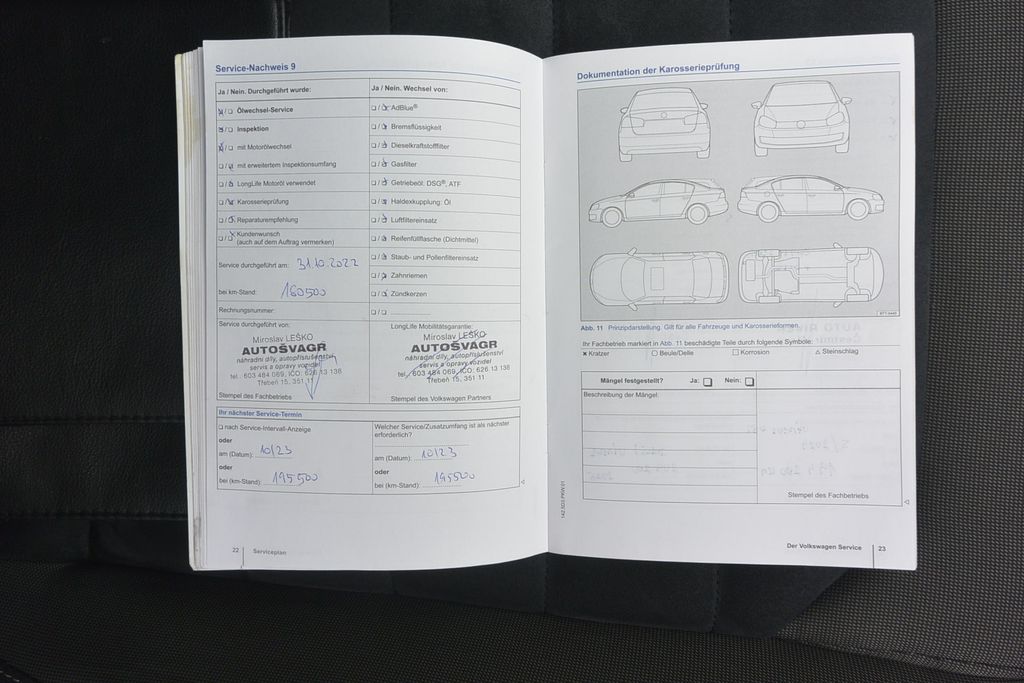 Service-Nachweis 9
Ja / Nein. Durchgeführt wurde:
Ölwechsel-Service
Inspektion
mit Motorölwechsel
mit erweitertem Inspektionsumfang
LongLife Motoröl verwendet
Karosserieprüfung
Reparaturempfehlung
Kundenwunsch
(auch auf dem Auftrag vermerken)
Service durchgeführt am: 31.10.2022
bei km-Stand: 160500
Rechnungsnummer:
Service durchgeführt von:
Miroslav LEŠKO
AUTOŠVAGR
náhradní díly, autopříslušenství
servis a opravy vozidel
tel.: 603 484 089, IČO: 626 13 138
Třebeň 15, 351 11
Stempel des Fachbetriebs
Ja / Nein. Wechsel von:
AdBlue®
Bremsflüssigkeit
Dieselkraftstofffilter
Gasfilter
Getriebeöl: DSG®, ATF
Haldexkupplung: Öl
Luftfiltereinsatz
Reifenfüllflasche (Dichtmittel)
Staub- und Pollenfiltereinsatz
Zahnriemen
Zündkerzen
LongLife Mobilitätsgarantie:
Miroslav LEŠKO
AUTOŠVAGR
náhradní díly, autopříslušenství
servis a opravy vozidel
tel.: 603 484 089, IČO: 626 13 138
Třebeň 15, 351 11
Stempel des Volkswagen Partners
Ihr nächster Service-Termin
nach Service-Intervall-Anzeige
oder
am (Datum): 10/23
oder
bei (km-Stand): 195500
Welcher Service/Zusatzumfang ist als nächster
erforderlich?
am (Datum): 10/23
oder
bei (km-Stand): 195500
22 Serviceplan
Dokumentation der Karosserieprüfung
Abb. 11 Prinzipdarstellung. Gilt für alle Fahrzeuge und Karosserieformen.
Ihr Fachbetrieb markiert in Abb. 11 beschädigte Teile durch folgende Symbole:
Kratzer Beule/Delle Korrosion Steinschlag
Mängel festgestellt? Ja: Nein:
Beschreibung der Mängel:
Stempel des Fachbetriebs
Der Volkswagen Service 23